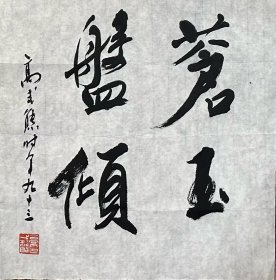 蒼玉
盤傾
高式熊时年九十三